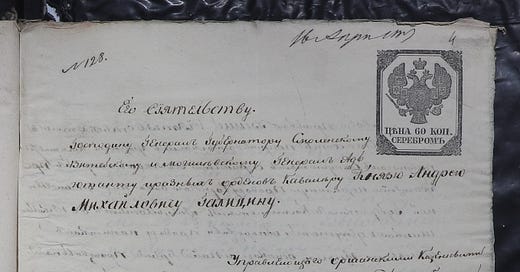 № 128.
16 Апрѣля
4
ЦѢНА 60 КОП.
СЕРЕБРОМЪ.
Его Сіятельству.
Господину Генералъ Губернатору Смоленскому
Витебскому и Могилевскому, Генералъ Адъ
ютанту и разныхъ орденовъ Кавалеру Князю Андрею
Михайловичу Галицину.
Управляющаго Оршанскими Казенными